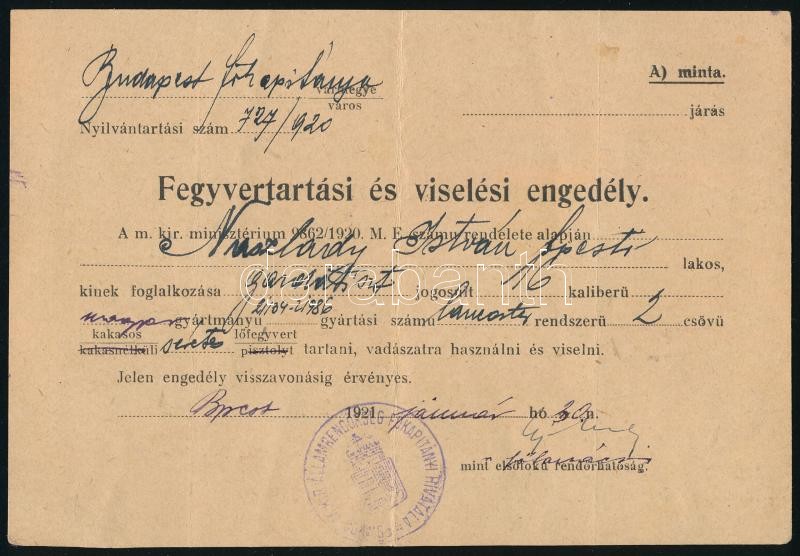 Budapest főkapitánya
A) minta.
vármegye
város
járás
Nyilvántartási szám 727/920
Fegyvertartási és viselési engedély.
A m. kir. minisztérium 9862/1920. M. E. számu rendelete alapján
István lakos,
kinek foglalkozása jogosult 16 kaliberü
gyártmányu gyártási számu lancaster rendszerü 2 csövü
kakasos lőfegyvert
kakasnélküli sörétes pisztolyt tartani, vadászatra használni és viselni.
Jelen engedély visszavonásig érvényes.
Bpest 1921 január hó 20 n.
mint elsőfoku rendőrhatóság.
ÁLLAMRENDŐRSÉG FŐKAPITÁNYI HIVATALA
darabanth